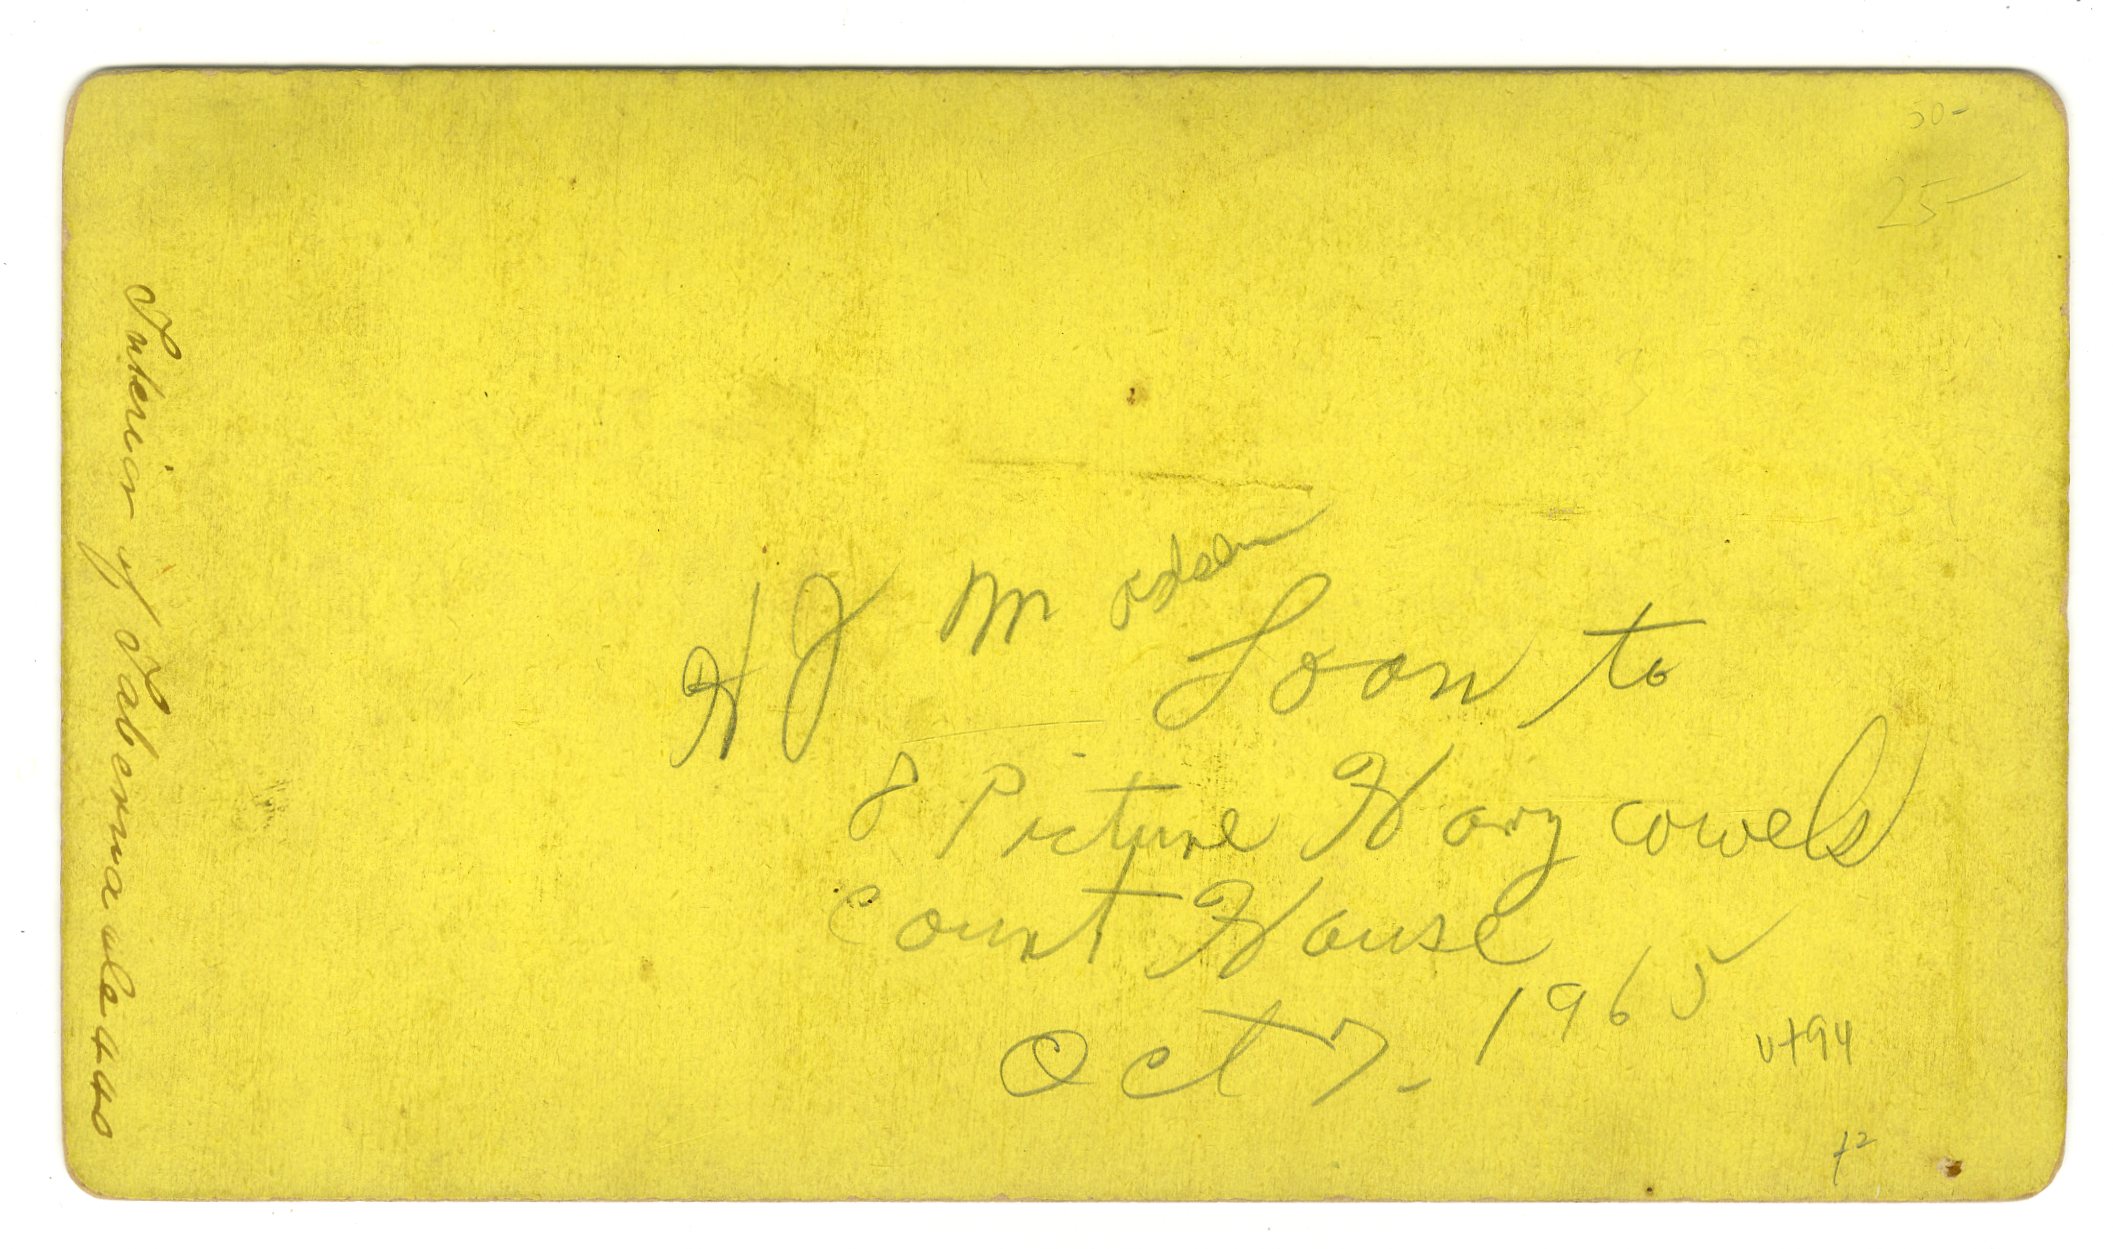 50-
25-
Interior of Tabernacle 440
H J Madsen
Loan to
8 Picture Hary cowels
Count House
Oct 7- 1965
Ut94